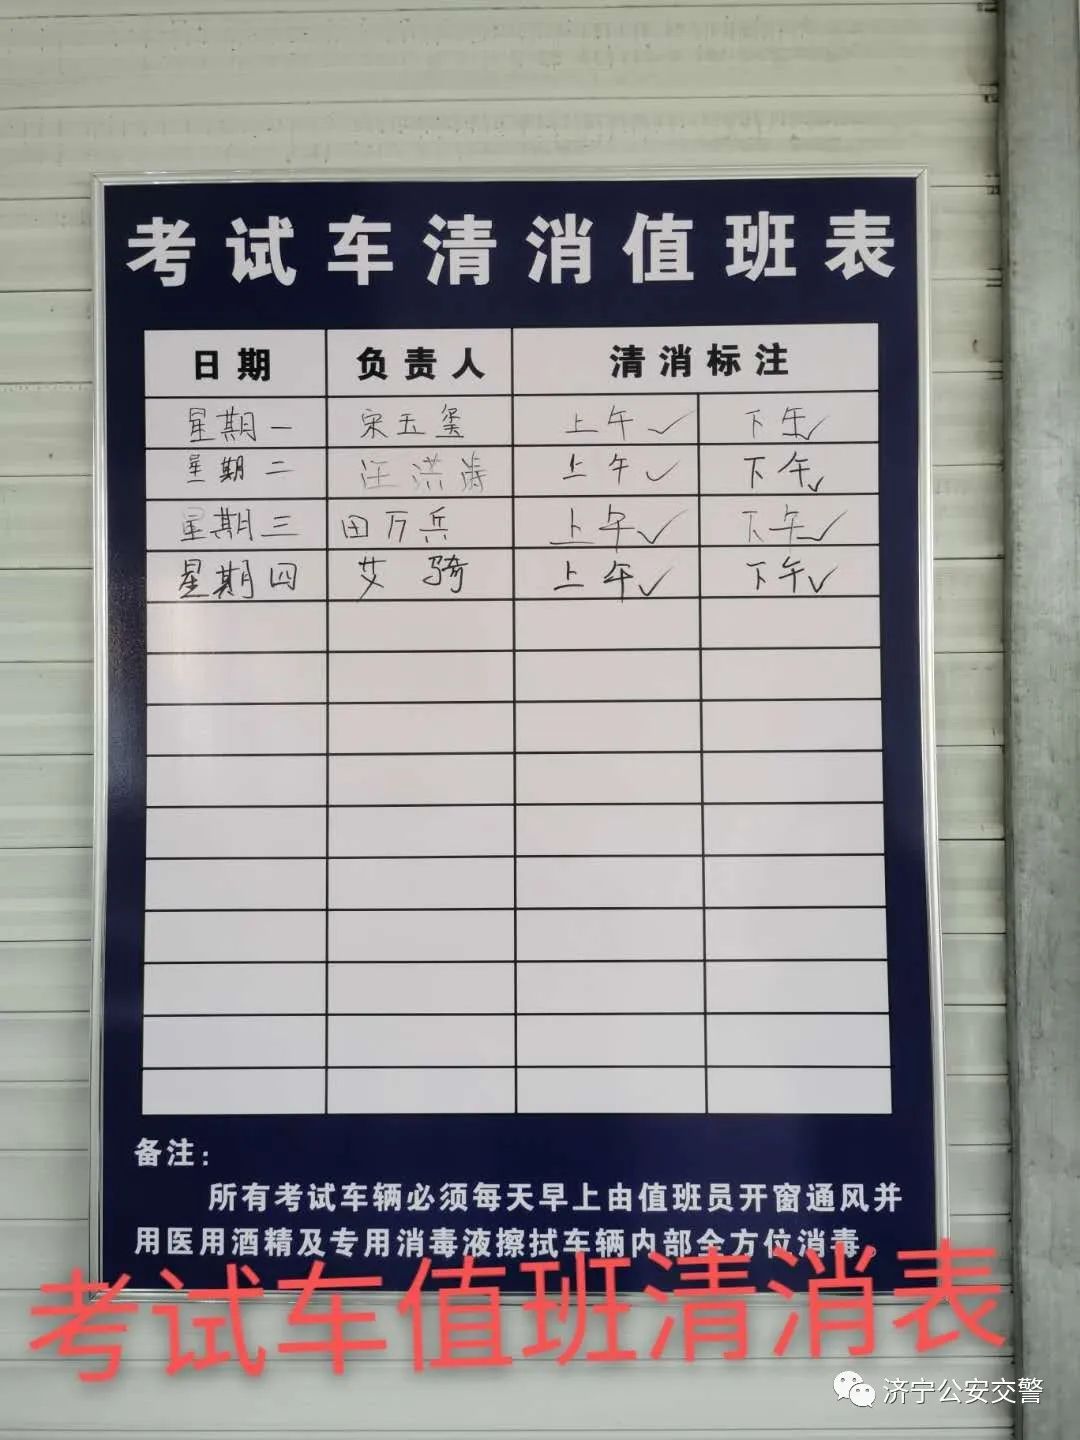 考试车清消值班表
日期 负责人 清消标注
星期一 宋玉玺 上午✓ 下午✓
星期二 汪洪涛 上午✓ 下午✓
星期三 田万兵 上午✓ 下午✓
星期四 艾骑 上午✓ 下午✓
备注：
所有考试车辆必须每天早上由值班员开窗通风并
用医用酒精及专用消毒液擦拭车辆内部全方位消毒。
考试车值班清消表
济宁公安交警